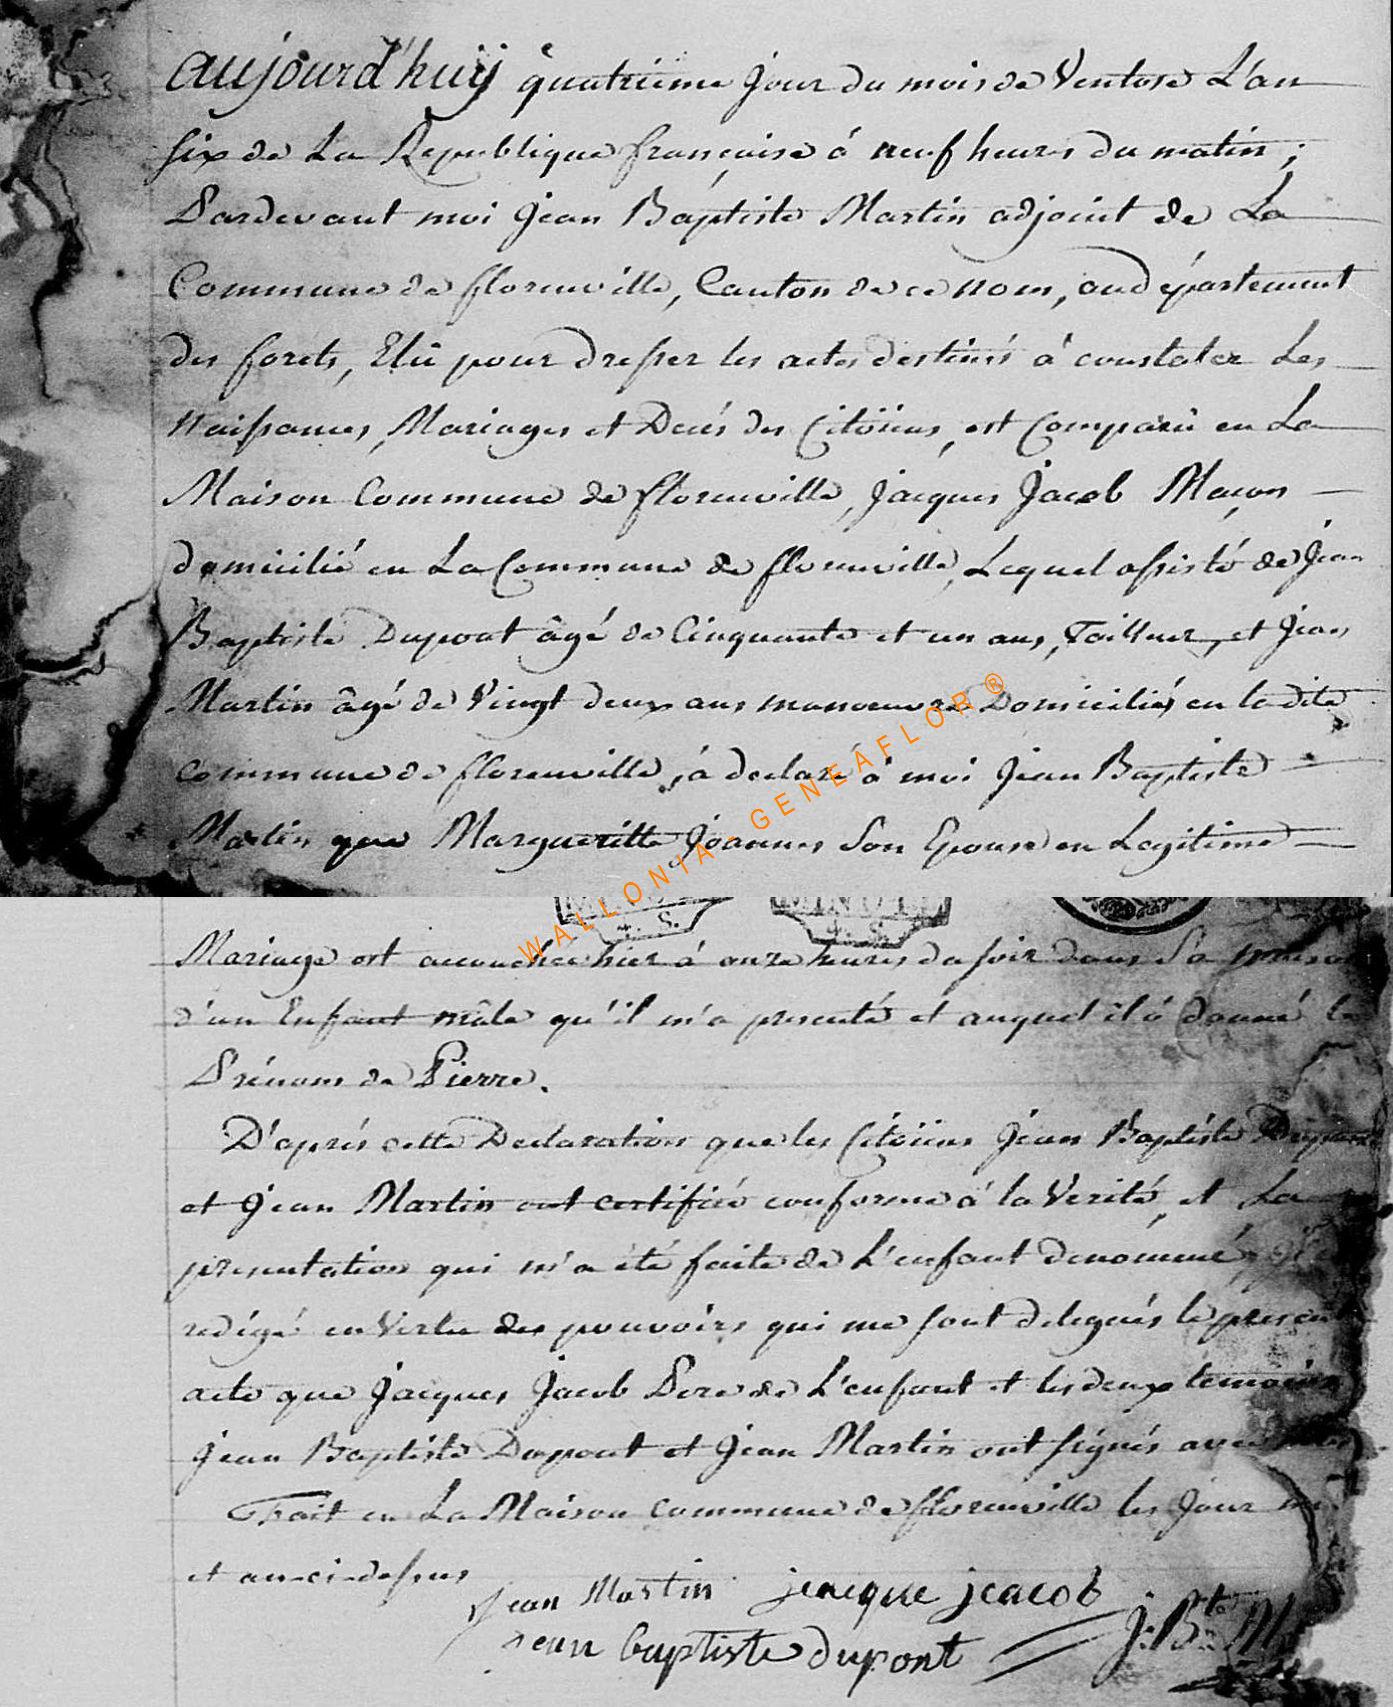 aujourd'huÿ quatriême jour du mois de Ventose L'an
six de La Republique française á neuf heures du matin ;
Pardevant moi Jean Baptiste Martin adjoint de La
Commune de florenville, Canton de ce nom, au département
des forets, Elû pour dresser les actes destinés à constater Les
Naissances, Mariages et Decés des Citöiens, est Comparû en La
Maison Commune de florenville, Jacques Jacob Maçon
domicilié en La Commune de florenville, Lequel assisté de Jean
Baptiste Dupont âgé de Cinquante et un ans, Tailleur, et Jean
Martin âgé de Vingt deux ans manoeuvre Domiciliés en la dite
commune de florenville, á declaré á moi Jean Baptiste
Martin que Margueritte Joannes Son Epouse en Legitime
WALLONIA - GENEAFLOR ®
4. S.
4. S.
Mariage est accouchée hier á onze heures du soir dans Sa maison
d'un Enfant mâle qu'il m'a presenté et auquel il á donné le
Prénom de Pierre.
D'aprés cette Declaration que les Citöiens Jean Baptiste Dupont
et Jean Martin ont certifiée conforme á la Verité, et La
presentation qui m'a été faite de L'enfant denommé,
redigé en Vertu des pouvoirs qui me sont delegués le present
acte que Jacques Jacob Pere de L'enfant et les deux temoins
Jean Baptiste Dupont et Jean Martin ont signés avec
Fait en La Maison commune de florenville les Jour
et an-ci-dessus
Jean Martin jeacque jeacob
Jean baptiste dupont J: Bte M